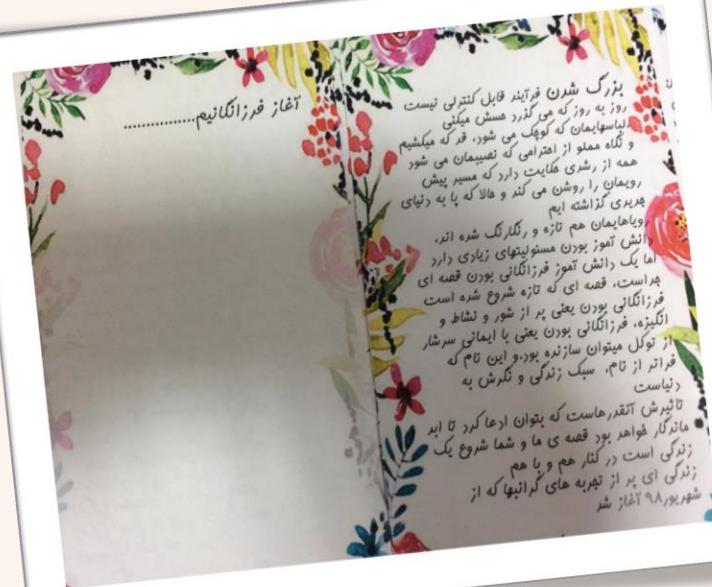 بزرگ شدن فرآیند قابل کنترلی نیست
روز به روز که می گذرد حسش میکنی
لباسهایمان که کوچک می شود، قد که میکشیم
و نگاه مملو از احترامی که نصیبمان می شود
همه از رشدی حکایت دارد که مسیر پیش
رویمان را روشن می کند و حالا که پا به دنیای
جدیدی گذاشته ایم
رویاهایمان هم تازه و رنگارنگ شده اند.
دانش آموز بودن مسئولیتهای زیادی دارد
اما یک دانش آموز فرزانگانی بودن قصه ای
جداست، قصه ای که تازه شروع شده است
فرزانگانی بودن یعنی پر از شور و نشاط و
انگیزه، فرزانگانی بودن یعنی با ایمانی سرشار
از توکل میتوان سازنده بود.و این نام که
فراتر از نام، سبک زندگی و نگرش به
دنیاست
تاثیرش آنقدرهاست که بتوان ادعا کرد تا ابد
ماندگار خواهد بود قصه ی ما و شما شروع یک
زندگی است در کنار هم و با هم
زندگی ای پر از تجربه های گرانبها که از
شهریور۹۸ آغاز شد
آغاز فرزانگانیم................